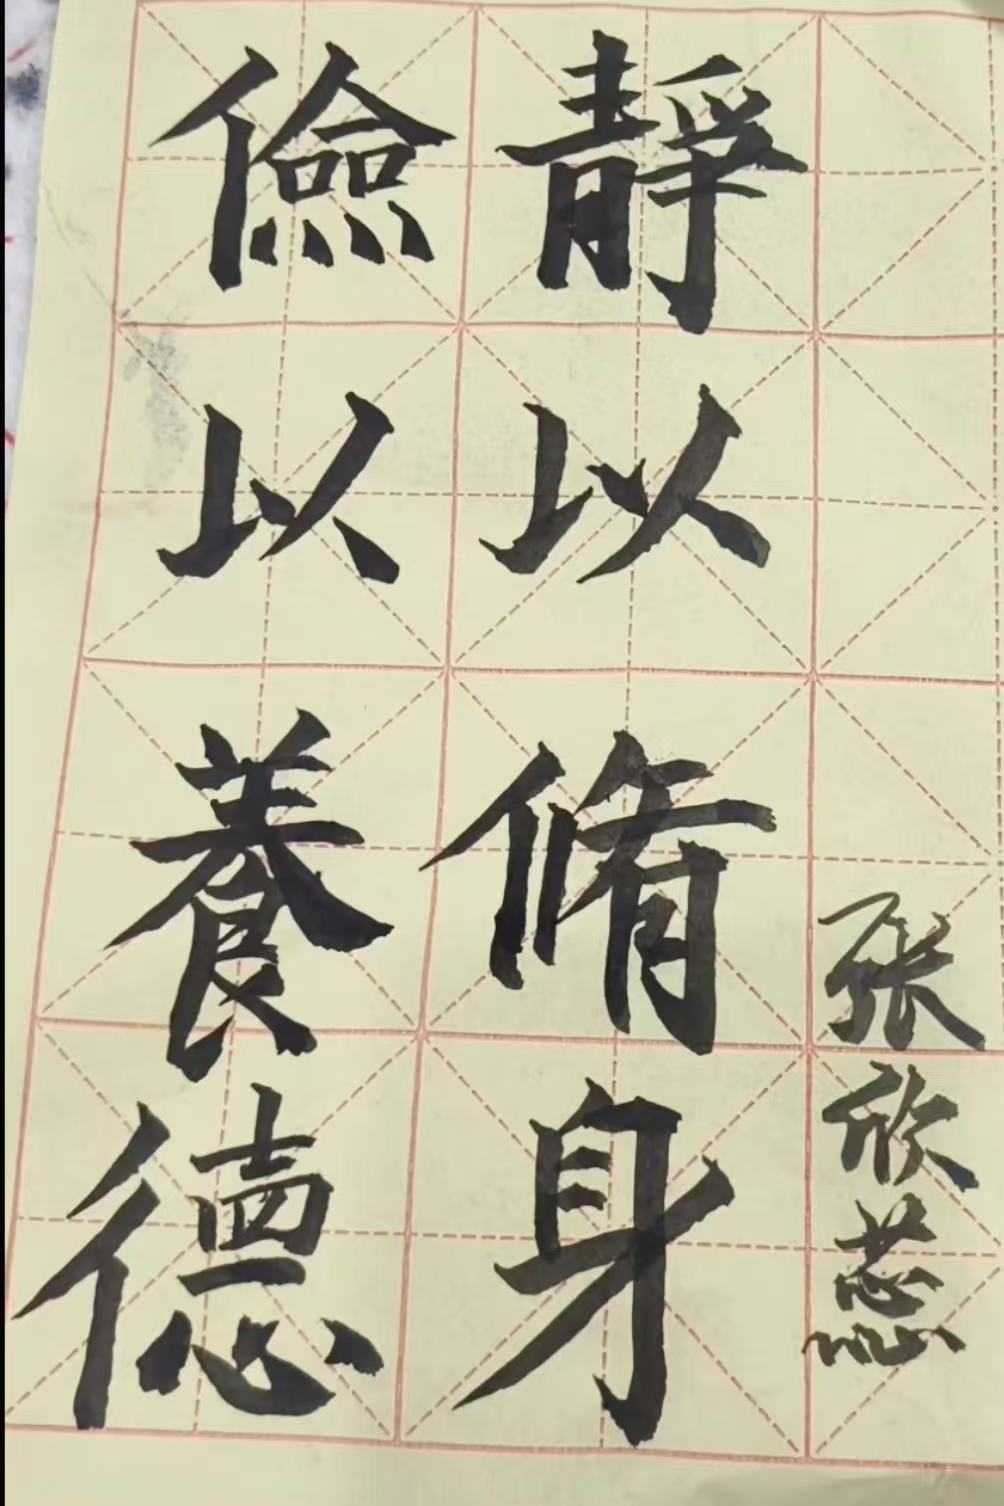 靜以脩身
儉以養德
张欣蕊